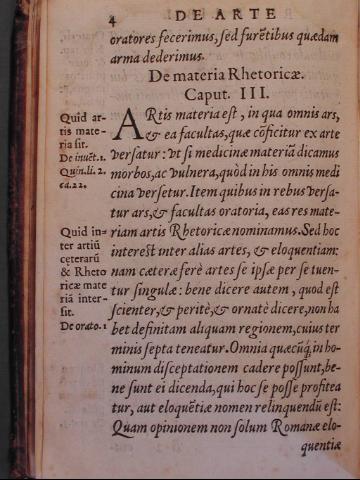 4 DE ARTE
oratores fecerimus, sed furẽtibus quædam
arma dederimus.
De materia Rhetoricæ.
Caput. III.
Quid ar-
tis mate-
ria sit.
De inuẽt. 1.
Quin. li. 2.
ca. 22.
ARtis materia est, in qua omnis ars,
& ea facultas, quæ cõficitur ex arte
versatur: vt si medicinæ materiã dicamus
morbos, ac vulnera, quòd in his omnis medi
cina versetur. Item quibus in rebus versa-
tur ars, & facultas oratoria, eas res mate-
riam artis Rhetoricæ nominamus. Sed hoc
interest inter alias artes, & eloquentiam:
nam cæteræ ferè artes se ipsæ per se tuen-
tur singulæ: bene dicere autem, quod est
scienter, & peritè, & ornatè dicere, non ha
bet definitam aliquam regionem, cuius ter
minis septa teneatur. Omnia quæcũq; in ho-
minum disceptationem cadere possunt, be-
ne sunt ei dicenda, qui hoc se posse profitea
tur, aut eloquẽtiæ nomen relinquendũ est:
Quam opinionem non solum Romanæ elo-
quentiæ
Quid in-
ter artiũ
ceterarũ
& Rheto
ricæ mate
ria inter-
sit.
De orato. 1